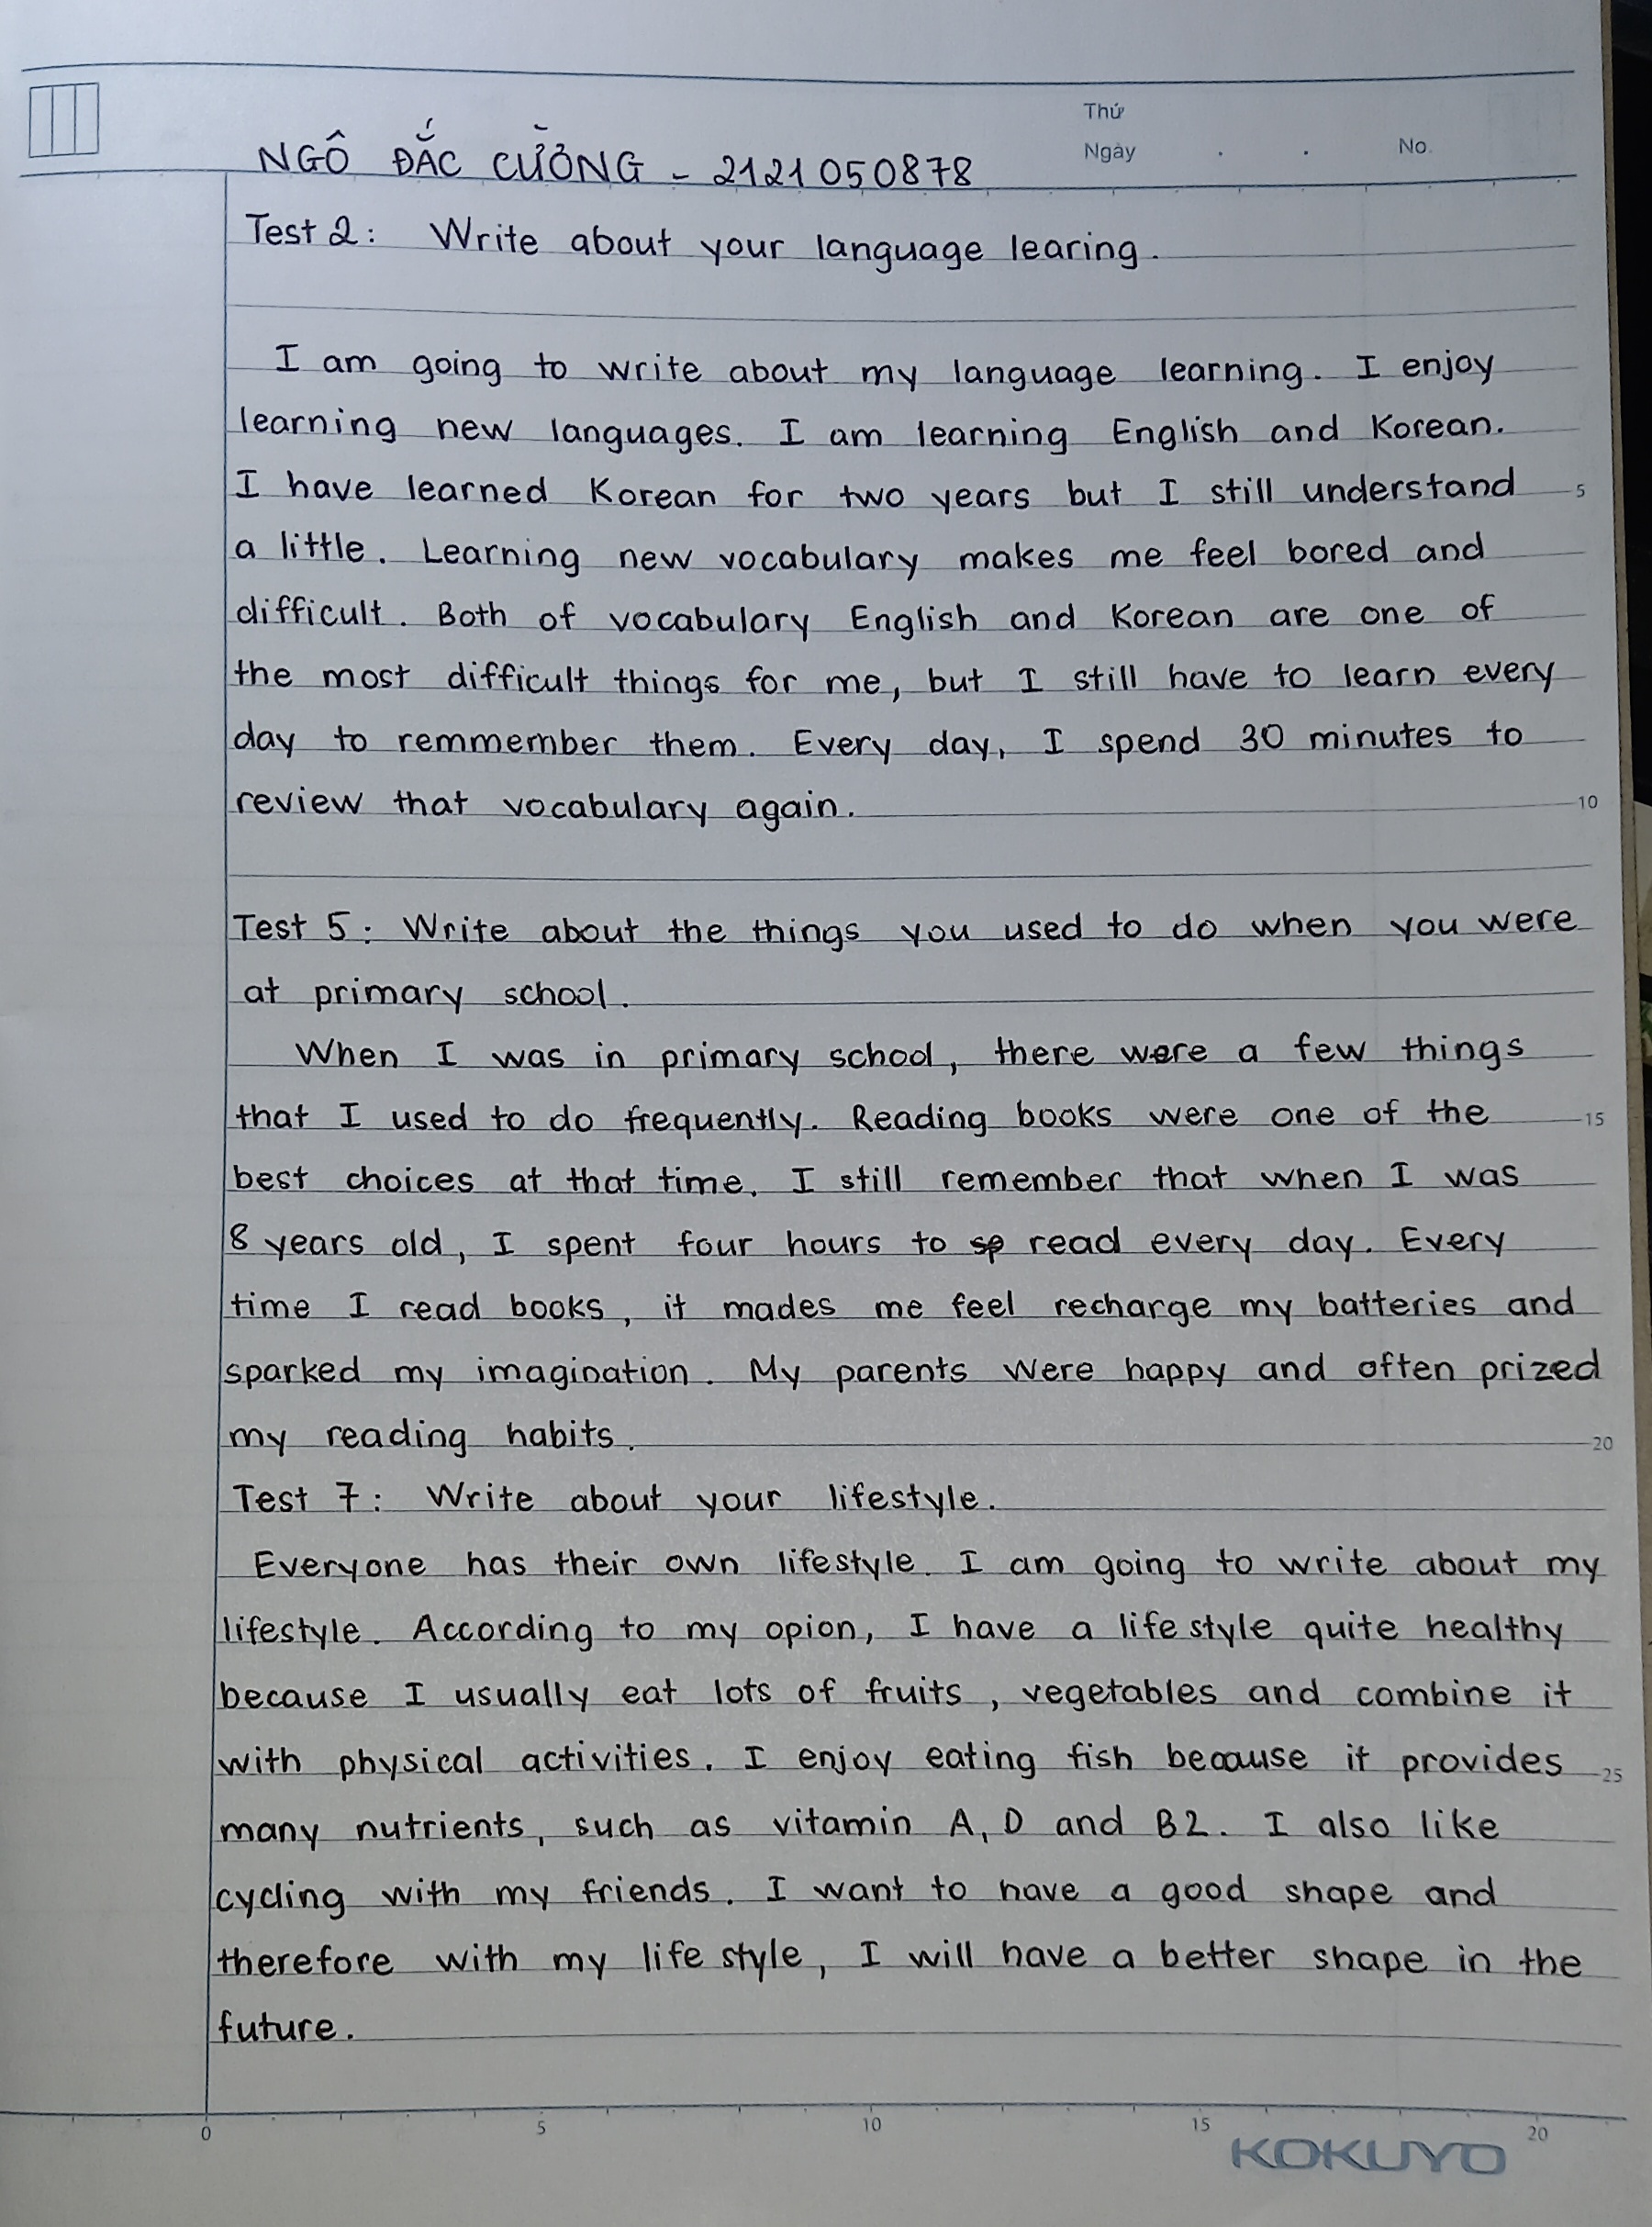 Thứ
Ngày . . No.
NGÔ ĐẮC CƯỜNG - 2121050878
Test 2: Write about your language learing.
I am going to write about my language learning. I enjoy
learning new languages. I am learning English and Korean.
I have learned Korean for two years but I still understand 5
a little. Learning new vocabulary makes me feel bored and
difficult. Both of vocabulary English and Korean are one of
the most difficult things for me, but I still have to learn every
day to remmember them. Every day, I spend 30 minutes to
review that vocabulary again. 10
Test 5: Write about the things you used to do when you were
at primary school.
When I was in primary school, there were a few things
that I used to do frequently. Reading books were one of the 15
best choices at that time. I still remember that when I was
8 years old, I spent four hours to sp read every day. Every
time I read books, it mades me feel recharge my batteries and
sparked my imagination. My parents were happy and often prized
my reading habits. 20
Test 7: Write about your lifestyle.
Everyone has their own lifestyle. I am going to write about my
lifestyle. According to my opion, I have a life style quite healthy
because I usually eat lots of fruits, vegetables and combine it
with physical activities. I enjoy eating fish because it provides 25
many nutrients, such as vitamin A, D and B2. I also like
cycling with my friends. I want to have a good shape and
therefore with my life style, I will have a better shape in the
future.
0 5 10 15 20
KOKUYO